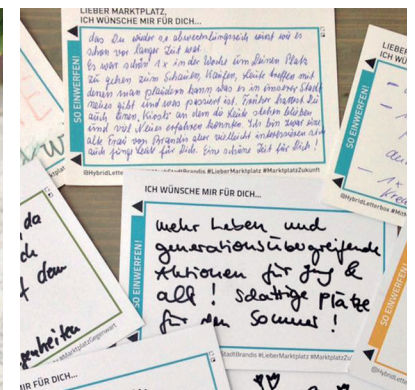 LIEBER MARKTPLATZ,
ICH WÜNSCHE MIR FÜR DICH...
das Du wieder so abwechslungsreich wirst wie es
schon vor langer Zeit war.
Es war schön 1x in der Woche um Deinen Platz
zu gehen zum Schauen, Kaufen, Leute treffen mit
denen man plaudern kann was es in unserer Stadt
neues gibt und was passiert ist. Früher hattest Du
auch einen Kiosk an dem die Leute stehen blieben
und viel Neues erfahren konnten. Ich bin zwar eine
alte Frau von Brandis aber vielleicht interessieren sich
auch junge Leute für Dich. Eine schöne Zeit für Dich!
SO EINWERFEN!
@HybridLetterbox #LieberMarktplatz #MarktplatzZukunft
LIEBER M
ICH WÜ
SO EINWERFEN!
- 1x
@HybridLetterbox #Mit
ICH WÜNSCHE MIR FÜR DICH...
mehr Leben und
generationsübergreifende
Aktionen für jung &
alt! schattige Plätze
für den Sommer!
SO EINWERFEN!
StadtBrandis #LieberMarktplatz #MarktplatzZu
da
ch
f dem
genheiten
#MarktplatzGegenwart
SO EINWERFEN!
@HybridLette
MIR FÜR DICH...